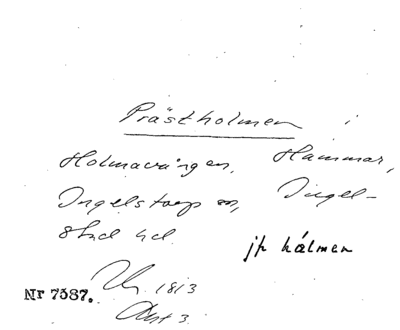 Prästholmen i
Holmavången, Hammar,
Ingelstorps sn, Ingel-
stad hd.
jfr hålmen
1813
Nr 7587.
Akt 3